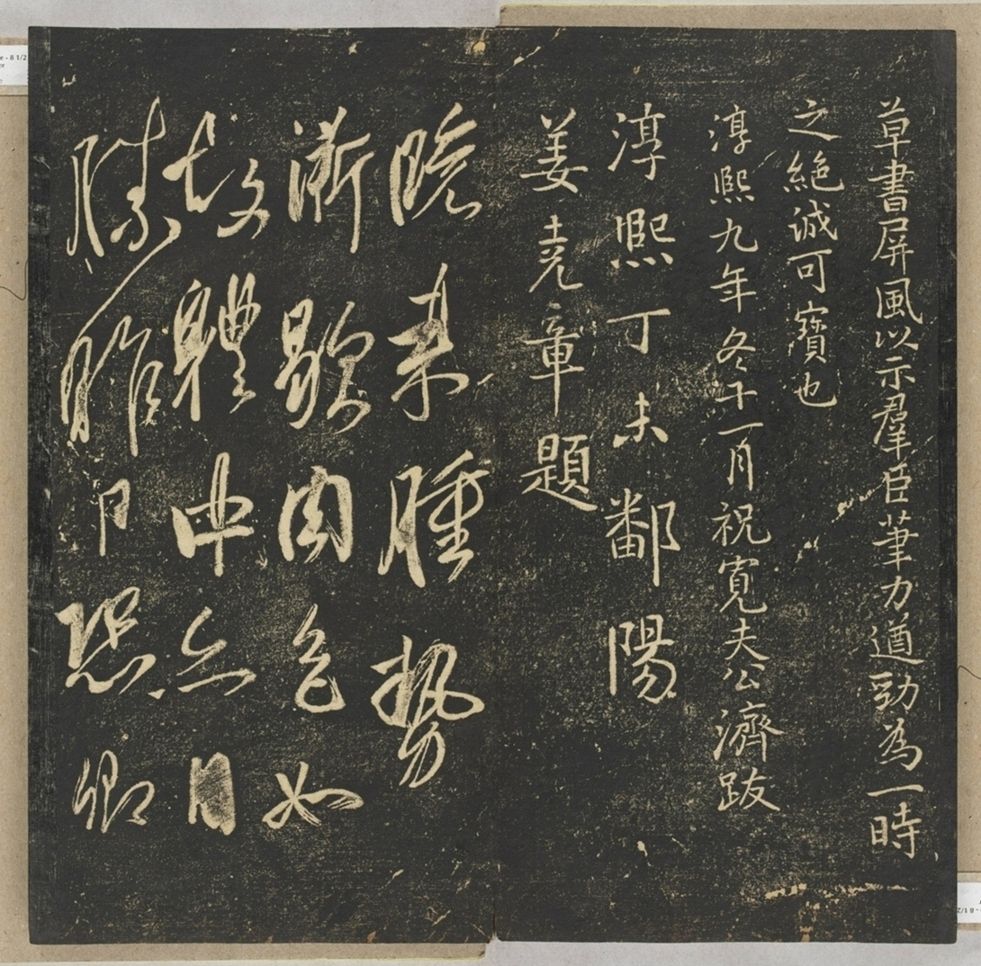 草書屏風以示羣臣筆力遒勁為一時
之絕誠可寶也
淳熙九年冬十一月祝寬夫公濟跋
淳熙丁未鄱陽
姜堯章題
晚來腫勢
漸歇肉色如
故體中亦自
勝昨日恐卿